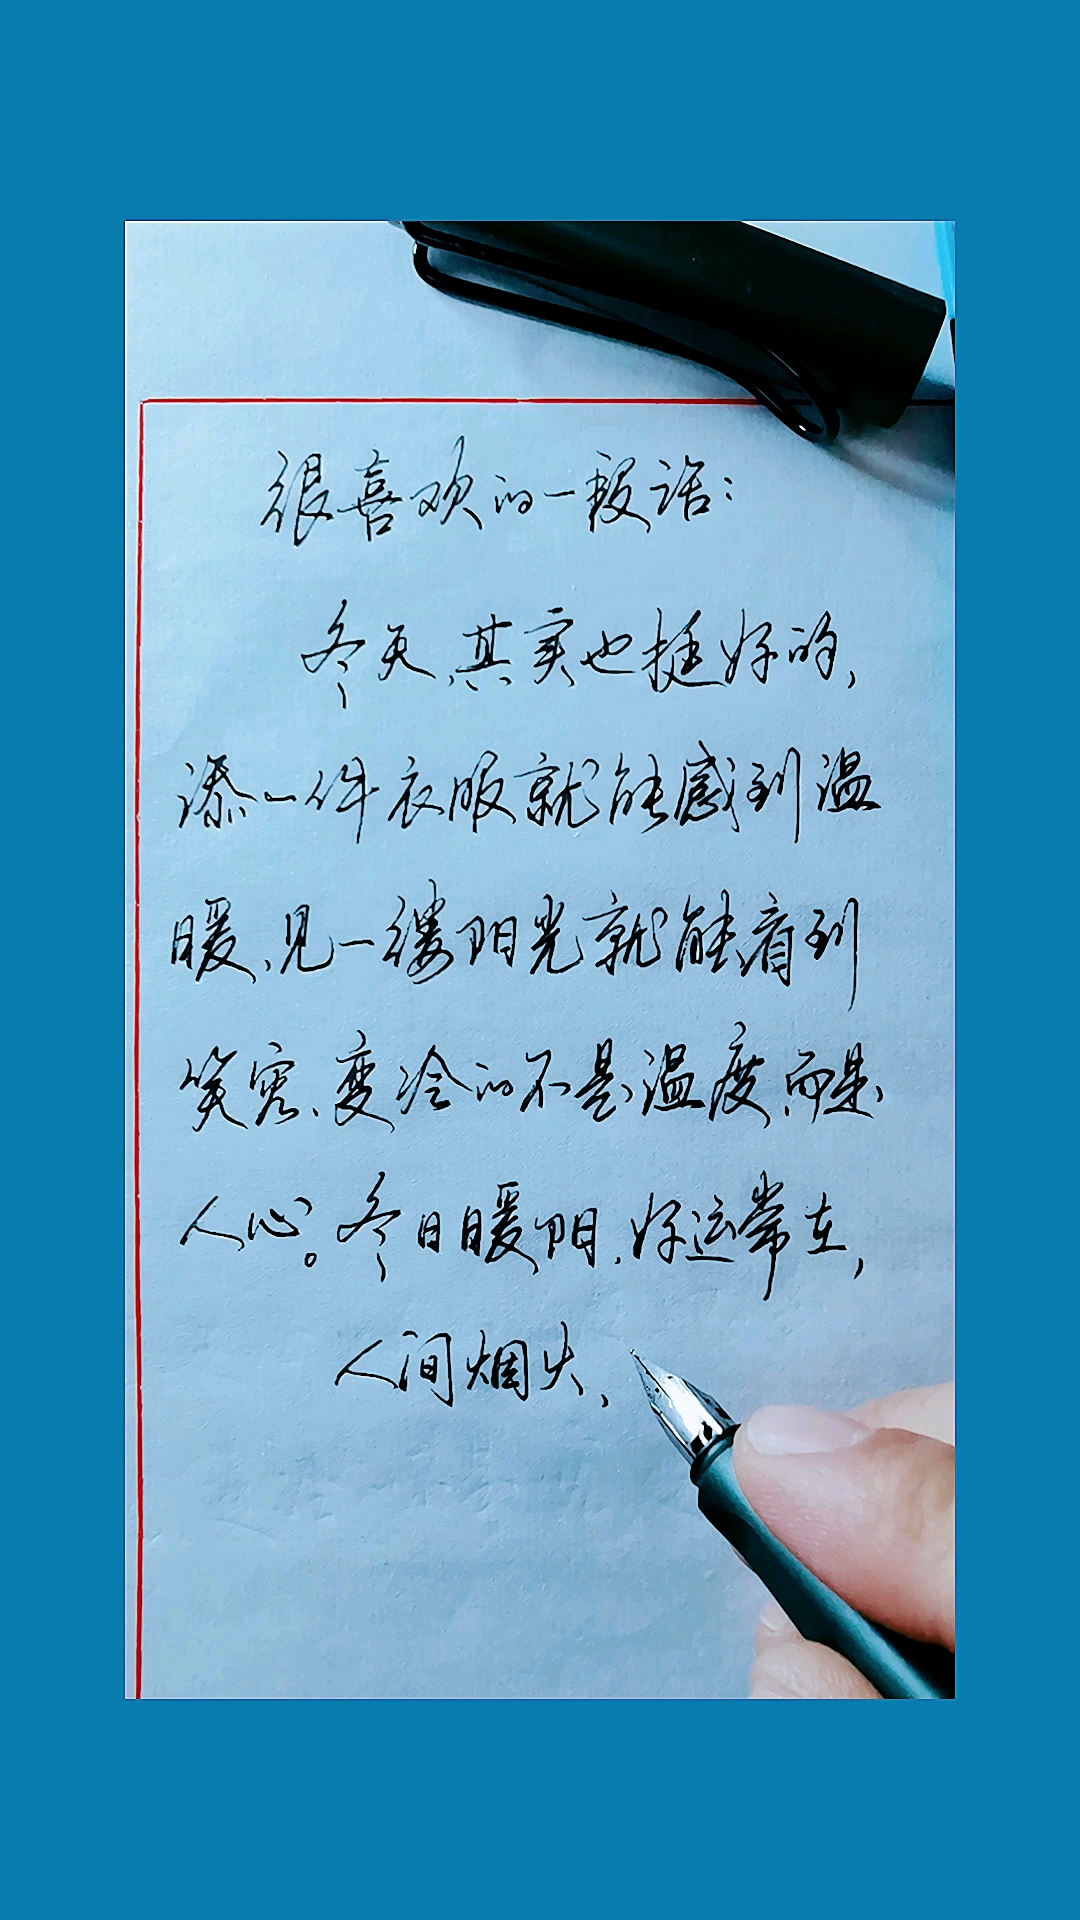 很喜欢的一段话：
冬天，其实也挺好的，
添一件衣服就能感到温
暖，见一缕阳光就能看到
笑容，变冷的不是温度，而是
人心。冬日暖阳，好运常在，
人间烟火，